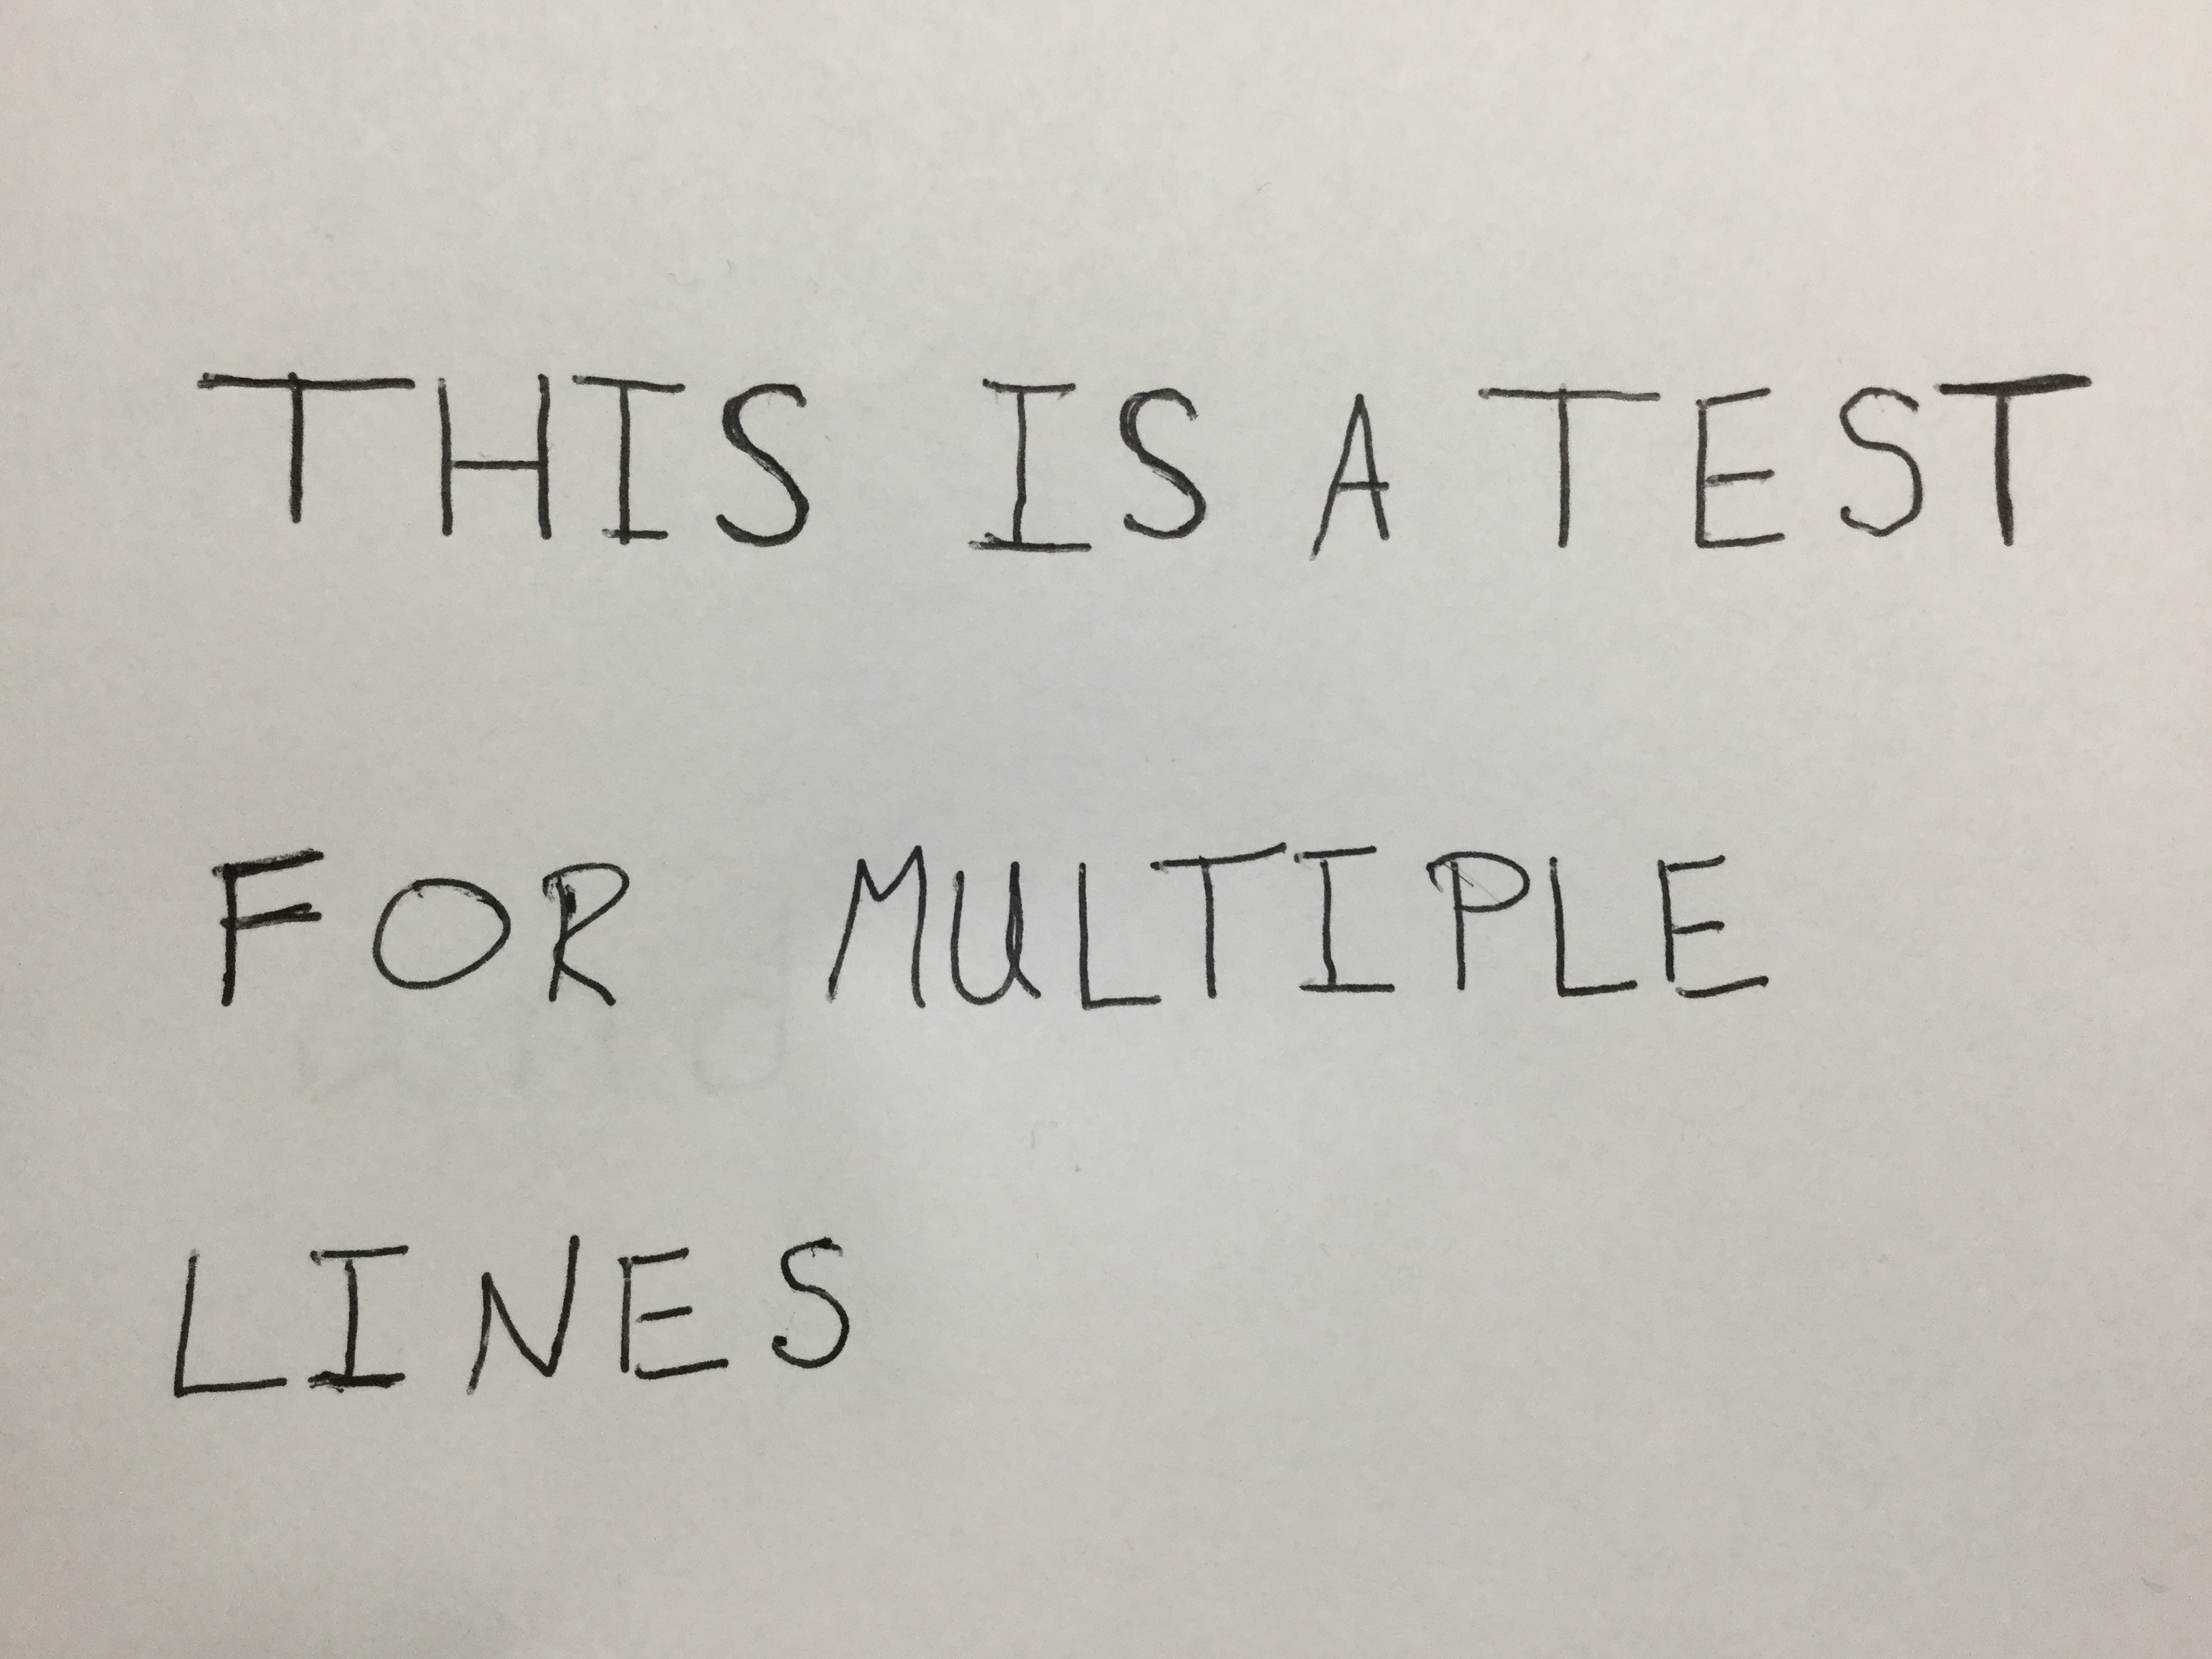 THIS IS A TEST
FOR MULTIPLE
LINES